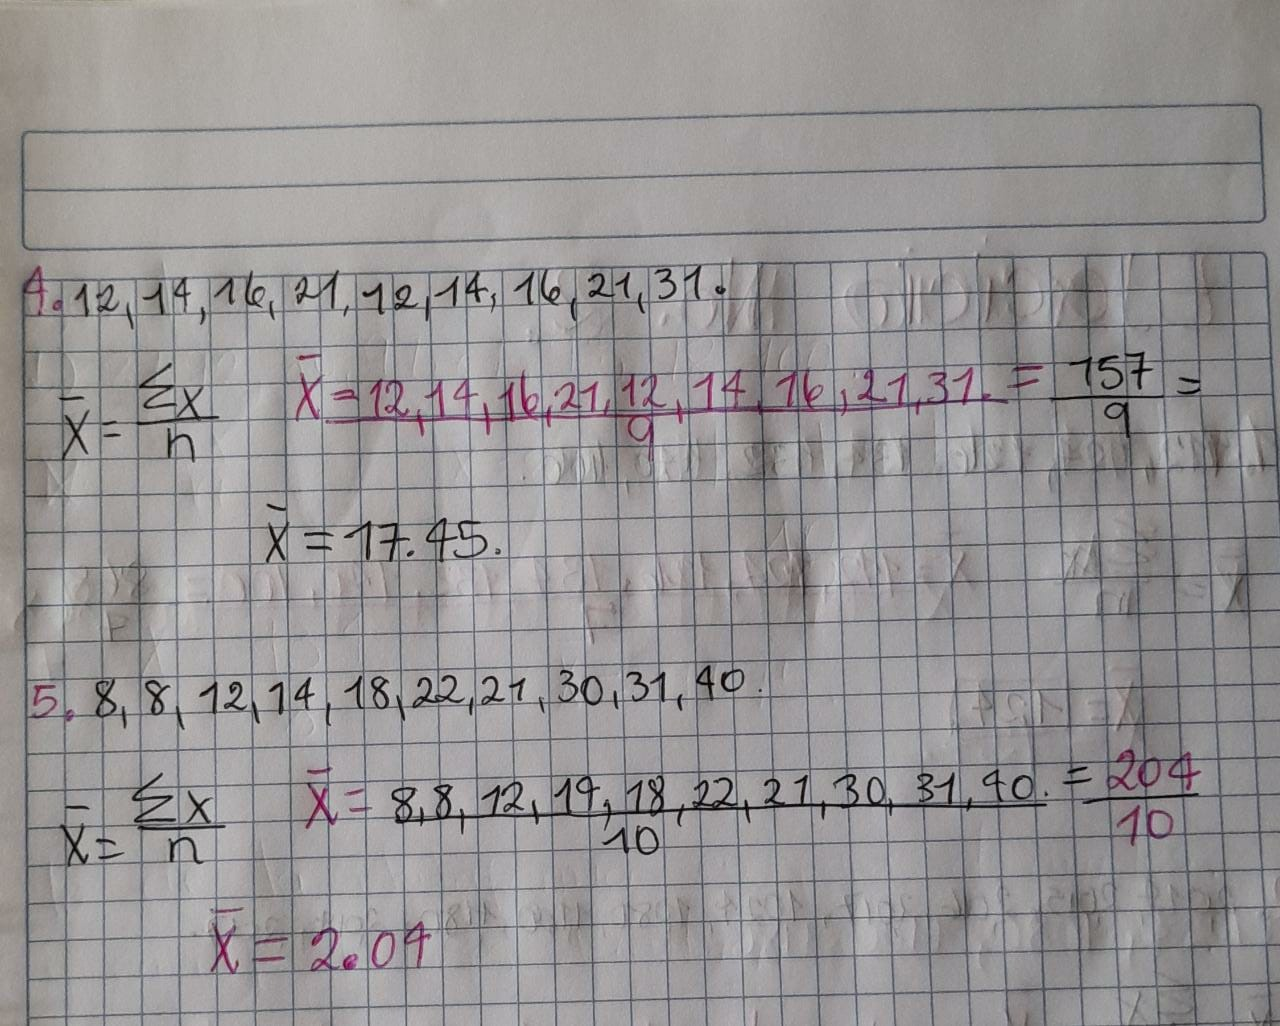 4. 12, 14, 16, 21, 12, 14, 16, 21, 31.
x̄ = Σx/n x̄ = 12, 14, 16, 21, 12, 14, 16, 21, 31./9 = 157/9 =
x̄ = 17.45.
5. 8, 8, 12, 14, 18, 22, 21, 30, 31, 40.
x̄ = Σx/n x̄ = 8, 8, 12, 14, 18, 22, 21, 30, 31, 40./10 = 204/10
x̄ = 2.04